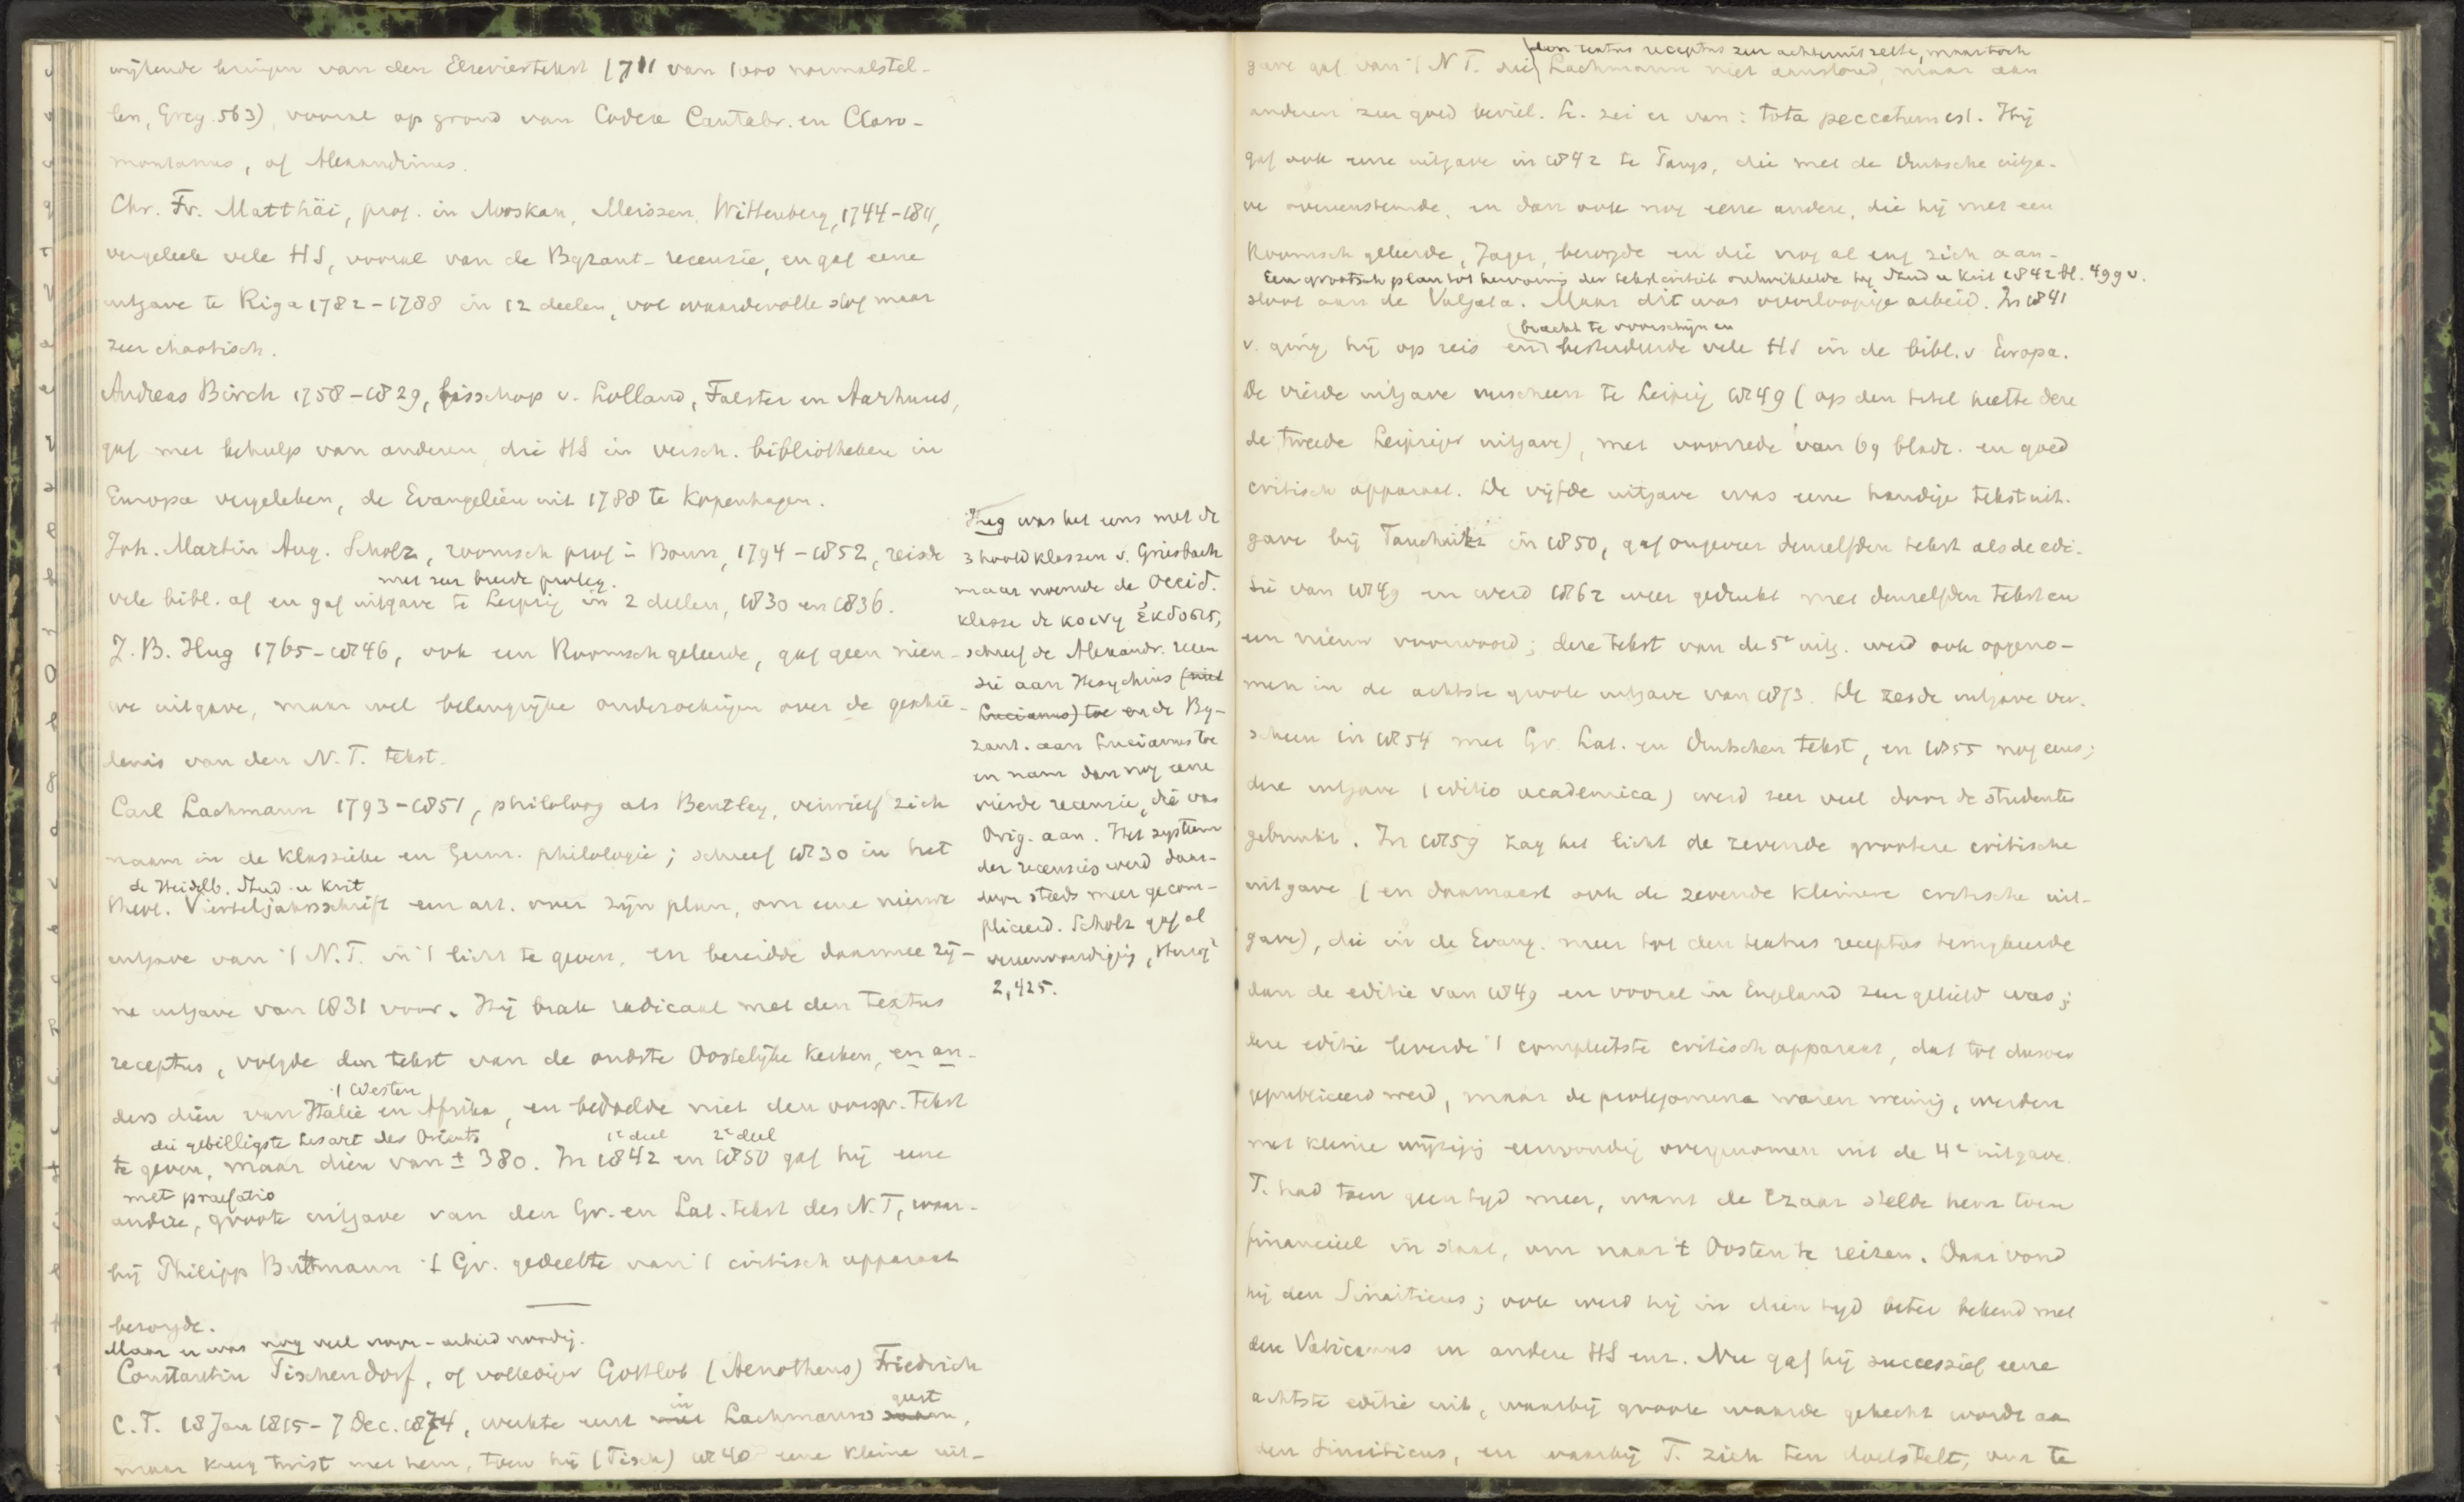 wijkende lezingen van den Elseviertekst (711 van 1000 normaalstel-
len, Greg. 563), vooral op grond van Codex Cantabr. en Claro-
montanus, of Alexandrinus.
Chr. Fr. Matthäi, prof. in Moskau, Meiszen, Wittenberg, 1744-1811,
vergeleek vele HS, vooral van de Byzant. recensie, en gaf eene
uitgave te Riga 1782-1788 in 12 deelen, vol waardevolle stof maar
zeer chaotisch.
Andreas Birch 1758-1829, bisschop v. Lolland, Falster en Aarhuus,
gaf met behulp van anderen, die HS in versch. bibliotheken in
Europa vergeleken, de Evangeliën uit 1788 te Kopenhagen.
Joh. Martin Aug. Scholz, roomsch prof in Bonn, 1794-1852, reisde
met zeer breede proleg.
vele bibl. af en gaf uitgave te Leipzig in 2 deelen, 1830 en 1836.
J. B. Hug 1765-1846, ook een Roomsch geleerde, gaf geen nieu-
we uitgave, maar wel belangrijke onderzoekingen over de geschie-
denis van den N. T. tekst.
Carl Lachmann 1793-1851, philoloog als Bentley, verwierf zich
naam in de klassieke en Germ. philologie; schreef 1830 in het
de Heidelb. Stud. u Krit
theol. Vierteljahrsschrift een art. over zijn plan, om eene nieuwe
uitgave van 't N.T. in 't licht te geven, en bereidde daarmee zij-
ne uitgave van 1831 voor. Hij brak radicaal met den Textus
receptus, volgde den tekst van de oudste Oostelijke kerken, en an-
't Westen
ders dien van Italië en Afrika, en bedoelde niet den oorspr. tekst
die gebilligste Lesart des Orients 1e deel 2e deel
te geven, maar dien van ± 380. In 1842 en 1850 gaf hij eene
met praefatio
andere, groote uitgave van den Gr. en Lat. tekst des N.T, waar-
bij Philipp Buttmann 't Gr. gedeelte van 't critisch apparaat
bezorgde.
Maar er was nog veel voor-arbeid noodig.
Constantin Tischendorf, of vollediger Gottlob (Aenotheus) Friedrich
in geest
C. T. 18 Jan 1815 - 7 Dec. 1874, werkte eerst Lachmanns,
maar kreeg twist met hem, toen hij (Tisch) 1840 eene kleine uit-
Hug was het eens met de
3 hoofdklassen v. Griesbach
maar noemde de Occid.
klasse de κοινη ἐκδοσις,
schreef de Alexandr. recen
sie aan Hesychius (niet
Lucianus) toe en de By-
zant. aan Lucianus toe
en nam dan nog eene
vierde recensie, die van
Orig. aan. Het systeem
der recensies werd daar-
door steeds meer gecom-
pliceerd. Scholz gaf al
vereenvoudiging, Herzog2
2,425.
den textus receptus zeer achteruit zette, maar toch
gave gaf van 't N T. die Lachmann niet aanstond, maar aan
anderen zeer goed beviel. L. zei er van: tota peccatum est. Hij
gaf ook eene uitgave in 1842 te Parijs, die met de Duitsche uitga-
ve overeenstemde, en dan ook nog eene andere, die hij met een
Roomsch geleerde, Jager, bezorgde en die nog al eng zich aan-
Een grootsch plan tot hervorming der tekstcritiek ontwikkelde hij Stud u Krit 1842 bl. 499 v.
sloot aan de Vulgata. Maar dit was voorloopige arbeid. In 1841
bracht te voorschijn en
v. ging hij op reis en bestudeerde vele HS in de bibl. v Europa.
De vierde uitgave verscheen te Leipzig 1849 (op den titel heette deze
de tweede Leipziger uitgave), met voorrede van 69 bladz. en goed
critisch apparaat. De vijfde uitgave was eene handige tekstuit-
gave bij Tauchnitz in 1850, gaf ongeveer denzelfden tekst als de edi-
tie van 1849 en werd 1862 weer gedrukt met denzelfden tekst en
een nieuw voorwoord; deze tekst van de 5e uitg. werd ook opgeno-
men in de achtste groote uitgave van 1873. De zesde uitgave ver-
scheen in 1854 met Gr. Lat. en Duitschen tekst, en 1855 nog eens;
deze uitgave (editio academica) werd zeer veel door de studenten
gebruikt. In 1859 zag het licht de zevende grootere critische
uitgave (en daarnaast ook de zevende kleinere critische uit-
gave), die in de Evang. meer tot den textus receptus terugkeerde
dan de editie van 1849 en vooral in Engeland zeer geliefd was;
deze editie leverde 't compleetste critisch apparaat, dat tot dusver
gepubliceerd werd, maar de prolegomena waren weinig, werden
met kleine wijziging eenvoudig overgenomen uit de 4e uitgave.
T. had toen geen tijd meer, want de Czaar stelde hem toen
financieel in staat, om naar 't Oosten te reizen. Daar vond
hij den Sinaiticus; ook werd hij in dien tijd beter bekend met
den Vaticanus en andere HS enz. Nu gaf hij successief eene
achtste editie uit, waarbij groote waarde gehecht wordt aan
den Sinaiticus, en waarbij T. zich ten doel stelt, om te